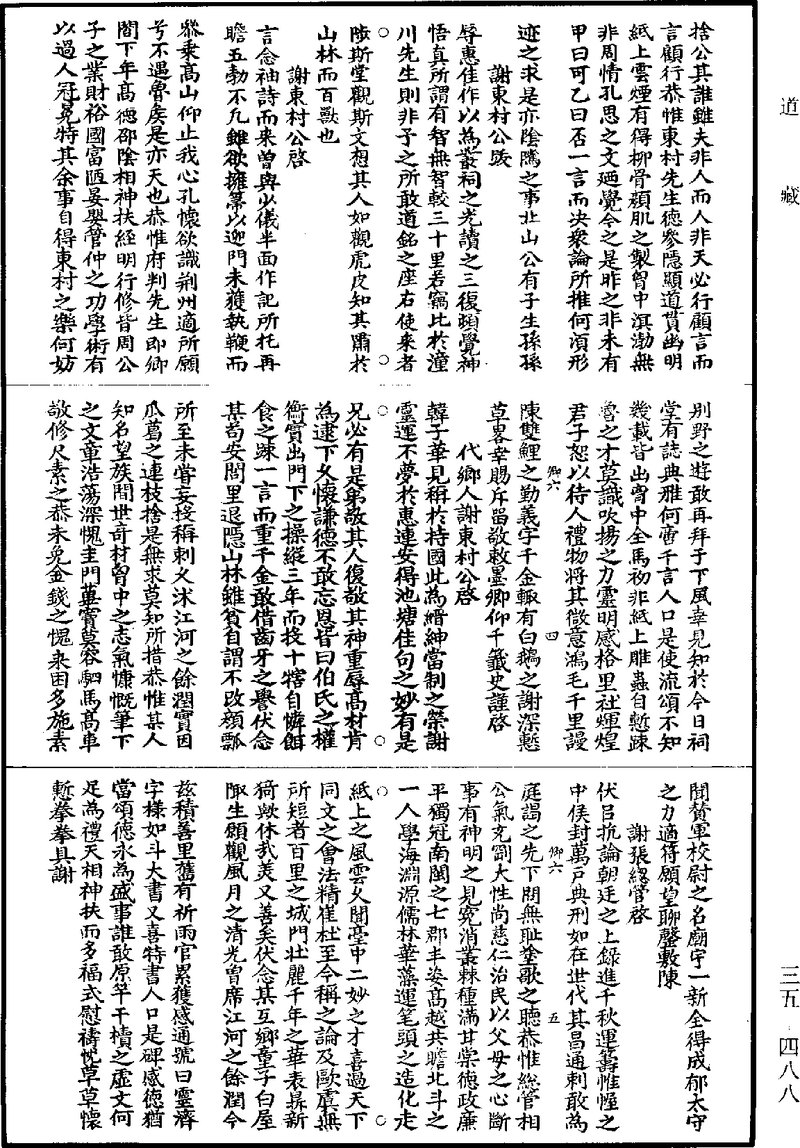 道藏
捨公其誰雖夫非人而人非天必行顧言而
言顧行恭惟東村先生德參隱顯道貫幽明
紙上雲煙有得柳骨顏肌之製胷中溟渤無
非周情孔思之文廼覺今之是昨之非未有
甲曰可乙曰否一言而决衆論所推何湏形
迹之求是亦陰隲之事北山公有子生孫孫
謝東村公䟦
辱惠佳作以為叢祠之光讀之三復頓覺神
悟真所謂有智無智較三十里若竊比於潼
川先生則非予之所敢道銘之座右使来者
陟斯堂觀斯文想其人如觀虎皮知其肅於
山林而百獸也
謝東村公啓
言念袖詩而来曾與少儀半面作記所托再
瞻五勃不凢雖欲擁篲以迎門未獲執鞭而
驂乗高山仰止我心孔懷欲識荆州適所願
兮不遇魯矦是亦天也恭惟府判先生即卿
閤下年高德邵陰相神扶經明行修皆周公
子之業財裕國富陋晏嬰管仲之功學術有
以過人冠冕特其余事自得東村之樂何妨
别野之遊敢再拜于下風幸見知於今日祠
堂有誌典雅何啻千言人口是使流頌不知
幾載皆出胷中全馬初非紙上雕蟲自慙踈
魯之才莫識吹揚之力靈明感格里社煇煌
君子恕以待人禮物將其微意鴻毛千里謾
陳雙鯉之勤義字千金輙有白鵝之謝深慙
草畧幸賜斥畱敬敕墨卿仰千籤史謹啓
代鄉人謝東村公啓
韓子華見稱於持國此為縉紳當制之榮謝
靈運不夢於惠連安得池塘佳句之妙有是
兄必有是弟敬其人復敬其神重辱高材肯
為逮下久懷謙德不敢忘恩皆曰伯氏之權
衡實出門下之操縱三年而投十犗自憐餌
食之踈一言而重千金敢借齒牙之譽伏念
某苟安閭里退隱山林雖貧自謂不改顏瓢
所至未嘗妄投稱刺久沐江河之餘潤實因
瓜葛之連枝捨是無求莫知所措恭惟某人
知名望族間世竒材胷中之志氣慷慨筆下
之文章浩蕩深愧圭門蓽竇莫容駟馬高車
敬修尺素之恭未免金錢之愧来困多施素
閒贊軍校尉之名廟宇一新全得成郁太守
之力適符願望聊罄敷陳
謝張緫管啓
伏呂抗論朝廷之上錄進千秋運籌惟幄之
中侯封萬戸典刑如在世代其昌通刺敢為
庭謁之先下問無耻塗歌之聽恭惟緫管相
公氣充剛大性尚慈仁治民以父母之心斷
事有神明之見寃消叢棘種滿甘棠德政廉
平獨冠南閩之七郡丰姿高越共瞻北斗之
一人學海淵源儒林華藻運筆頭之造化走
紙上之風雲久聞臺中二妙之才喜過天下
同文之會法精崔杜至今稱之論及歐虞無
所短者百里之城門壯麗千年之華表㬎新
猗歟休哉美又善矣伏念某互鄉童子白屋
陬生願觀風月之清光曾席江河之餘潤今
兹積善里舊有祈雨官累獲感通號曰靈濟
字樣如斗大書又喜特書人口是碑感德猶
當頌德永為盛事誰敢原竿干櫝之虚文何
足為禮天相神扶而多福式慰禱恱草草懷
慙拳拳具謝
卿六
四
卿六
五
三五·四八八